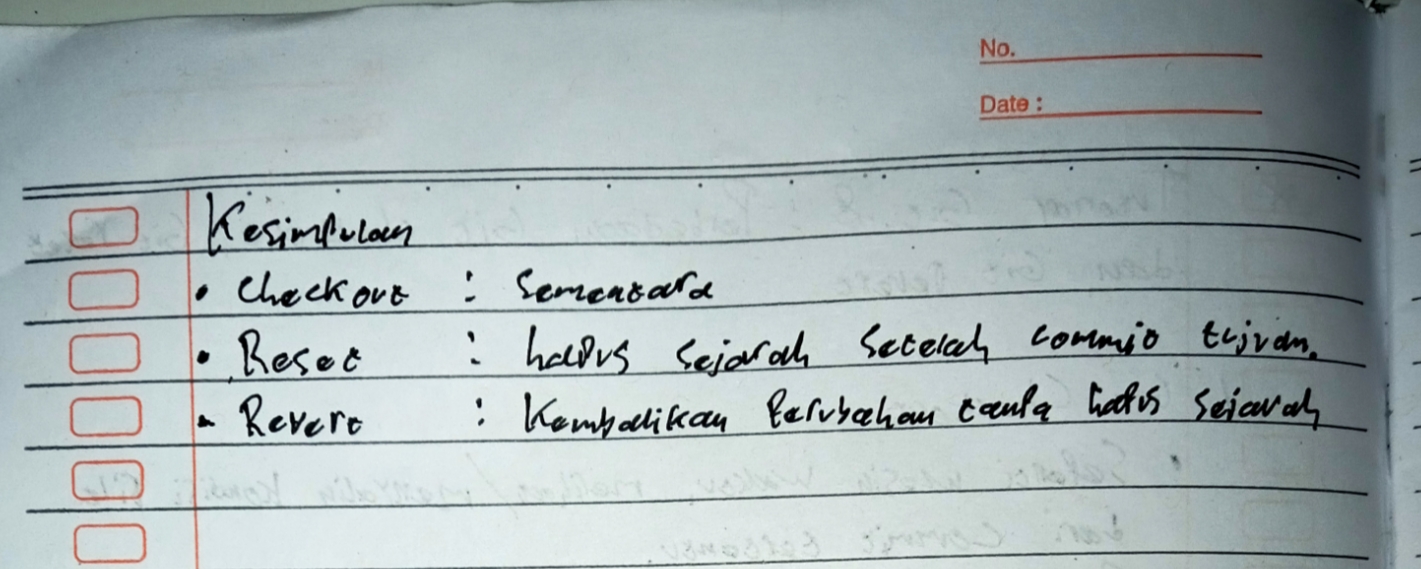 No.
Date :
Kesimpulan
• Checkout : Sementara
• Reset : hapus sejarah setelah commit tujuan.
• Revert : Kembalikan Perubahan tanpa hapus sejarah